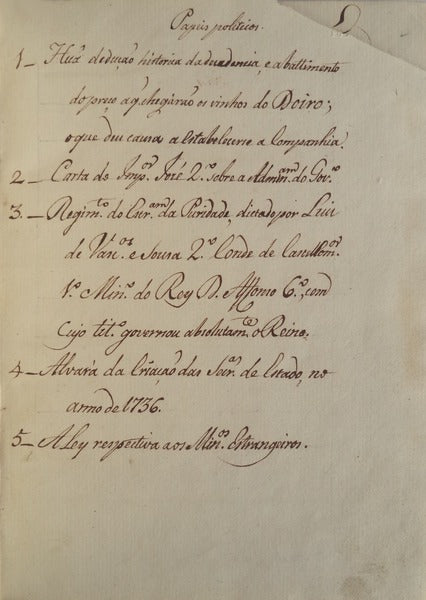 Papeis politicos.
1 _ Huã deducção historica da decadencia, e abattimento
do preço a q. chegárão os vinhos do Doiro;
o que deu causa a Estabelecerse a Companhia.
2 _ Carta do Imp.or Jozé 2.º sobre a Admin.am do Gov.no
3 _ Regim.to do Escr.am da Puridade, dictado por Luis
de Vasc.os e Sousa 2.º Conde de Castellom.or
1.º Min.o do Rey D. Affonso 6.º, com
Cujo tit.o governou absolutam.te o Reino.
4 _ Alvará da Criação das Secr.as de Estado, no
anno de 1736.
5 _ A Ley respectiva aos Min.os Estrangeiros.